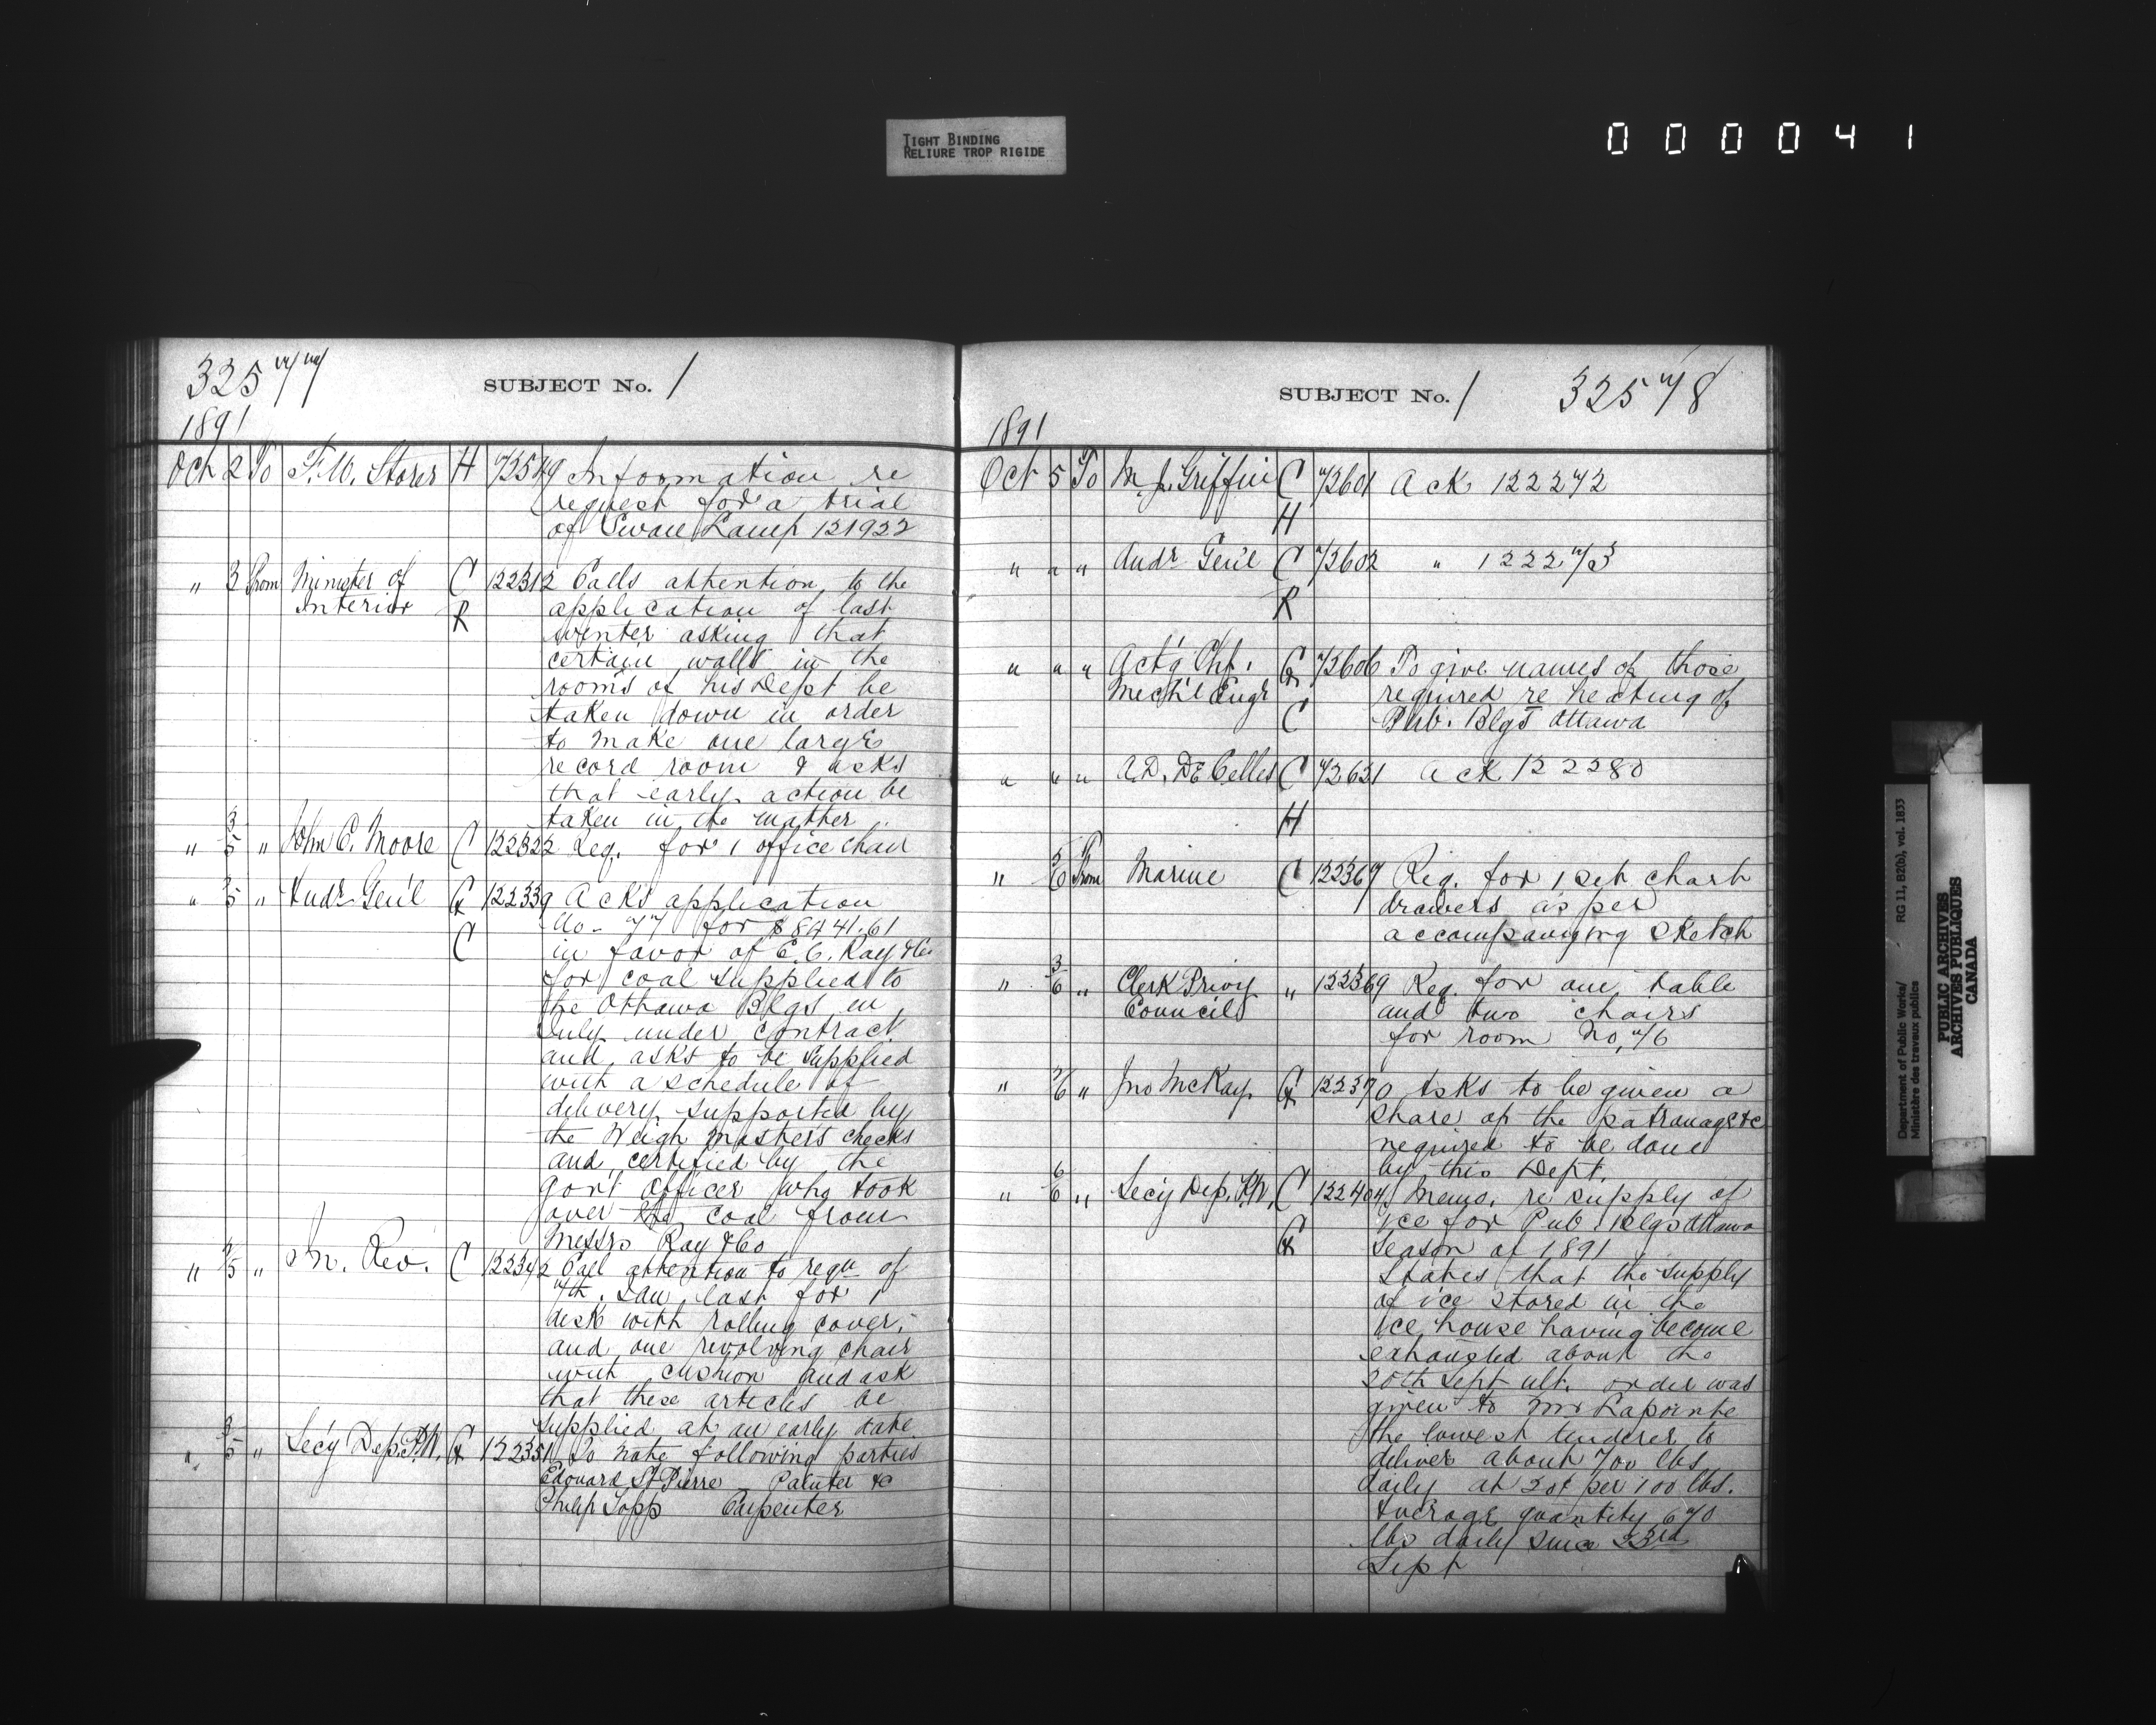 TIGHT BINDING
RELIURE TROP RIGIDE
000041
325 77
SUBJECT No. 1
1891
Oct 2 To F. W. Storer H 72549 Information re
request for a trial
of Swan Lamp 121922
" 3 From Minister of C 122312 Calls attention to the
Interior R application of last
winter asking that
certain walls in the
rooms of his Dept be
taken down in order
to make one large
record room & asks
that early action be
taken in the matter
" 3/5 " John C. Moore C 122322 Req. for 1 office chair
" 3/5 " Audr Gen'l G 122339 Acks application
C No. 77 for $8441.61
in favor of E. C. Ray & Co
for coal supplied to
the Ottawa Blgs in
July under contract
and asks to be supplied
with a schedule of
delivery supported by
the Weigh Masters checks
and certified by the
Gov't Officer who took
over the coal from
Messrs Ray & Co
" /5 " In. Rev. C 122342 Call attention to requ of
7th Jan last for 1
desk with rolling cover,
and one revolving chair
with cushion and ask
that these articles be
supplied at an early date
" 3/5 " Secy Dep. P.W. G 122351 To note following parties
Edouard St Pierre Painter &c
Philip Topp Carpenter
SUBJECT No. 1
325 78
1891
Oct 5 To M. J. Griffin C 72601 Ack 122272
H
" " " Audr Gen'l C 72602 " 122273
R
" " " Act'g Chf. G 72606 To give names of those
Mech'l Engr required re heating of
C Pub. Blgs Ottawa
" " " A. D. DeCelles C 72621 Ack 122280
H
" 5/6 From Marine C 122367 Req. for 1 set chart
drawers as per
accompanying sketch
" 3/6 " Clerk Privy " 122369 Req. for one table
Council and two chairs
for room No. 76
" /6 " Jno McKay G 122370 Asks to be given a
share of the patronage &c
required to be done
by this Dept.
" 6/6 " Secy Dep. P.W. C 122404 Memo. re supply of
G ice for Pub. Blgs Ottawa
season of 1891
States that the supply
of ice stored in the
ice house having become
exhausted about the
20th Sept ult. order was
given to Mr Lapointe
the lowest tenderer to
deliver about 700 lbs
daily at 20¢ per 100 lbs.
Average quantity 670
lbs daily since 23rd
Sept
Department of Public Works/
Ministère des travaux publics
RG 11, B2(b), vol. 1833
PUBLIC ARCHIVES
ARCHIVES PUBLIQUES
CANADA